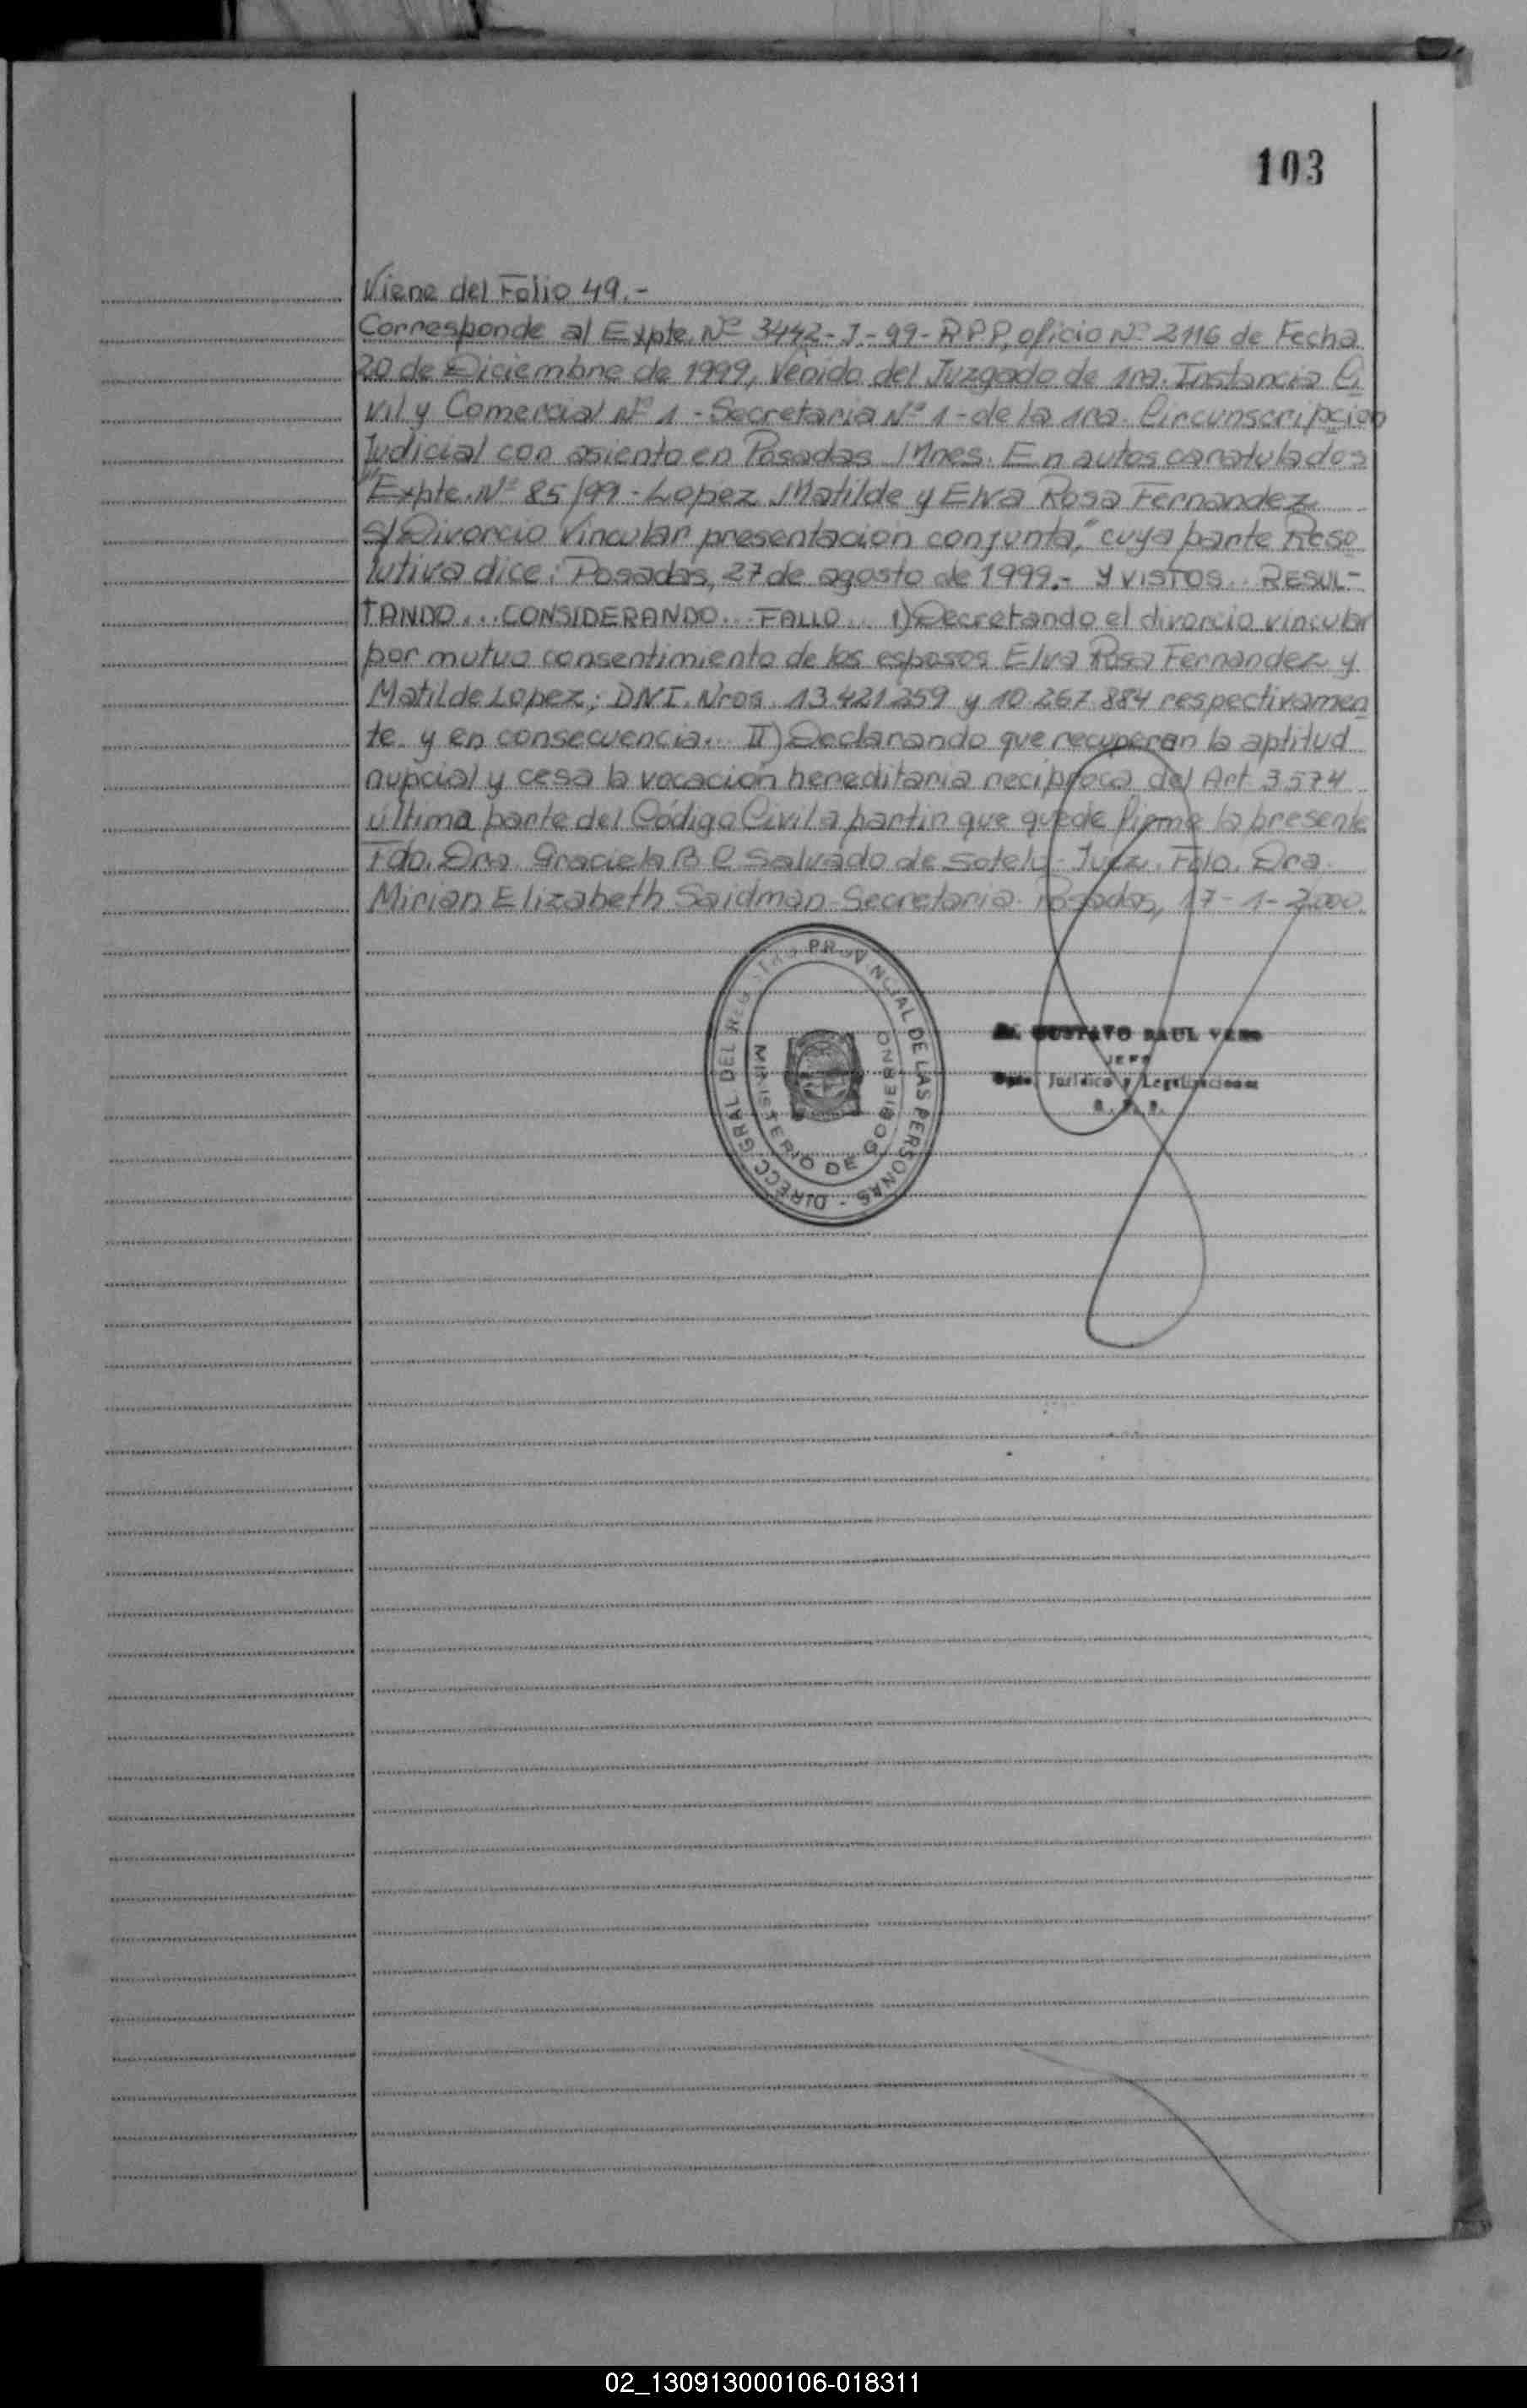 103
Viene del Folio 49.-
Corresponde al Expte. Nº 3442-J-99-R.P.P, oficio Nº 2116 de Fecha
20 de Diciembre de 1999, Venido del Juzgado de 1ra. Instancia Ci
vil y Comercial Nº 1 - Secretaria Nº 1 - de la 1ra. Circunscripcion
Judicial con asiento en Posadas Mnes. En autos caratulados
"Expte. Nº 85/99 - Lopez Matilde y Elva Rosa Fernandez
S/Divorcio Vincular presentacion conjunta," cuya parte Reso
lutiva dice: Posadas, 27 de agosto de 1999.- Y VISTOS... RESUL-
TANDO... CONSIDERANDO... FALLO... 1) Decretando el divorcio vincular
por mutuo consentimiento de los esposos Elva Rosa Fernandez y
Matilde Lopez; DNI. Nros. 13.421.259 y 10.267.884 respectivamen
te y en consecuencia... II) Declarando que recuperan la aptitud
nupcial y cesa la vocación hereditaria reciproca del Art. 3.574
última parte del Código Civil a partir que quede firme la presente
Fdo. Dra. Graciela B. C Salvado de Sotelo - Juez. Fdo. Dra.
Mirian Elizabeth Saidman - Secretaria. Posadas, 17-1-2.000.
DIRECC GRAL DEL REGISTRO PROVINCIAL DE LAS PERSONAS -
MINISTERIO DE GOBIERNO
GUSTAVO RAUL
JEFE
Dpto. Jurídico y Legalizaciones
R. P. P.
02_130913000106-018311